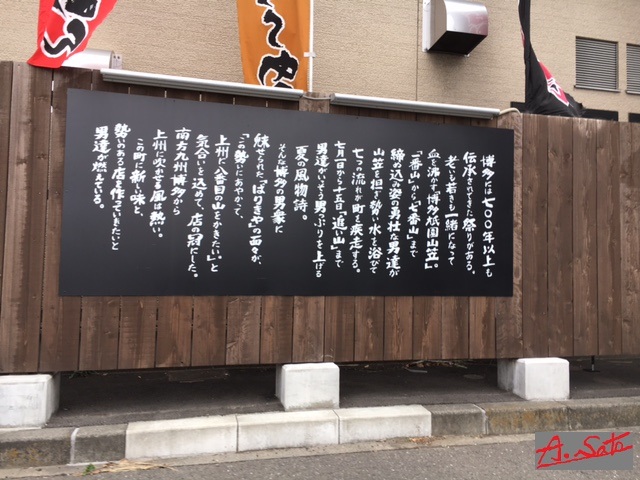 博多には七〇〇年以上も
伝承されてきた祭りがある。
老いも若きも一緒になって
血を沸す博多祇園山笠。
「一番山」から「七番山」まで
締め込み姿の勇壮な男達が
山笠を担ぎ勢い水を浴びて
七つの流れが町を疾走する。
七月一日から十五日「追い山」まで
男達がいっそう男っぷりを上げる
夏の風物詩。
そんな博多の男衆に
魅せられた、「ばりきや」の面々が、
「この勢にあやかって、
上州に八番目の山をかきたい」と
気合いを込めて、店の冠にした。
南方九州博多から
上州に吹かせる風は熱い。
この町に新しい味と、
勢いのある店を作っていきたいと
男達が燃えている。
A. Sato